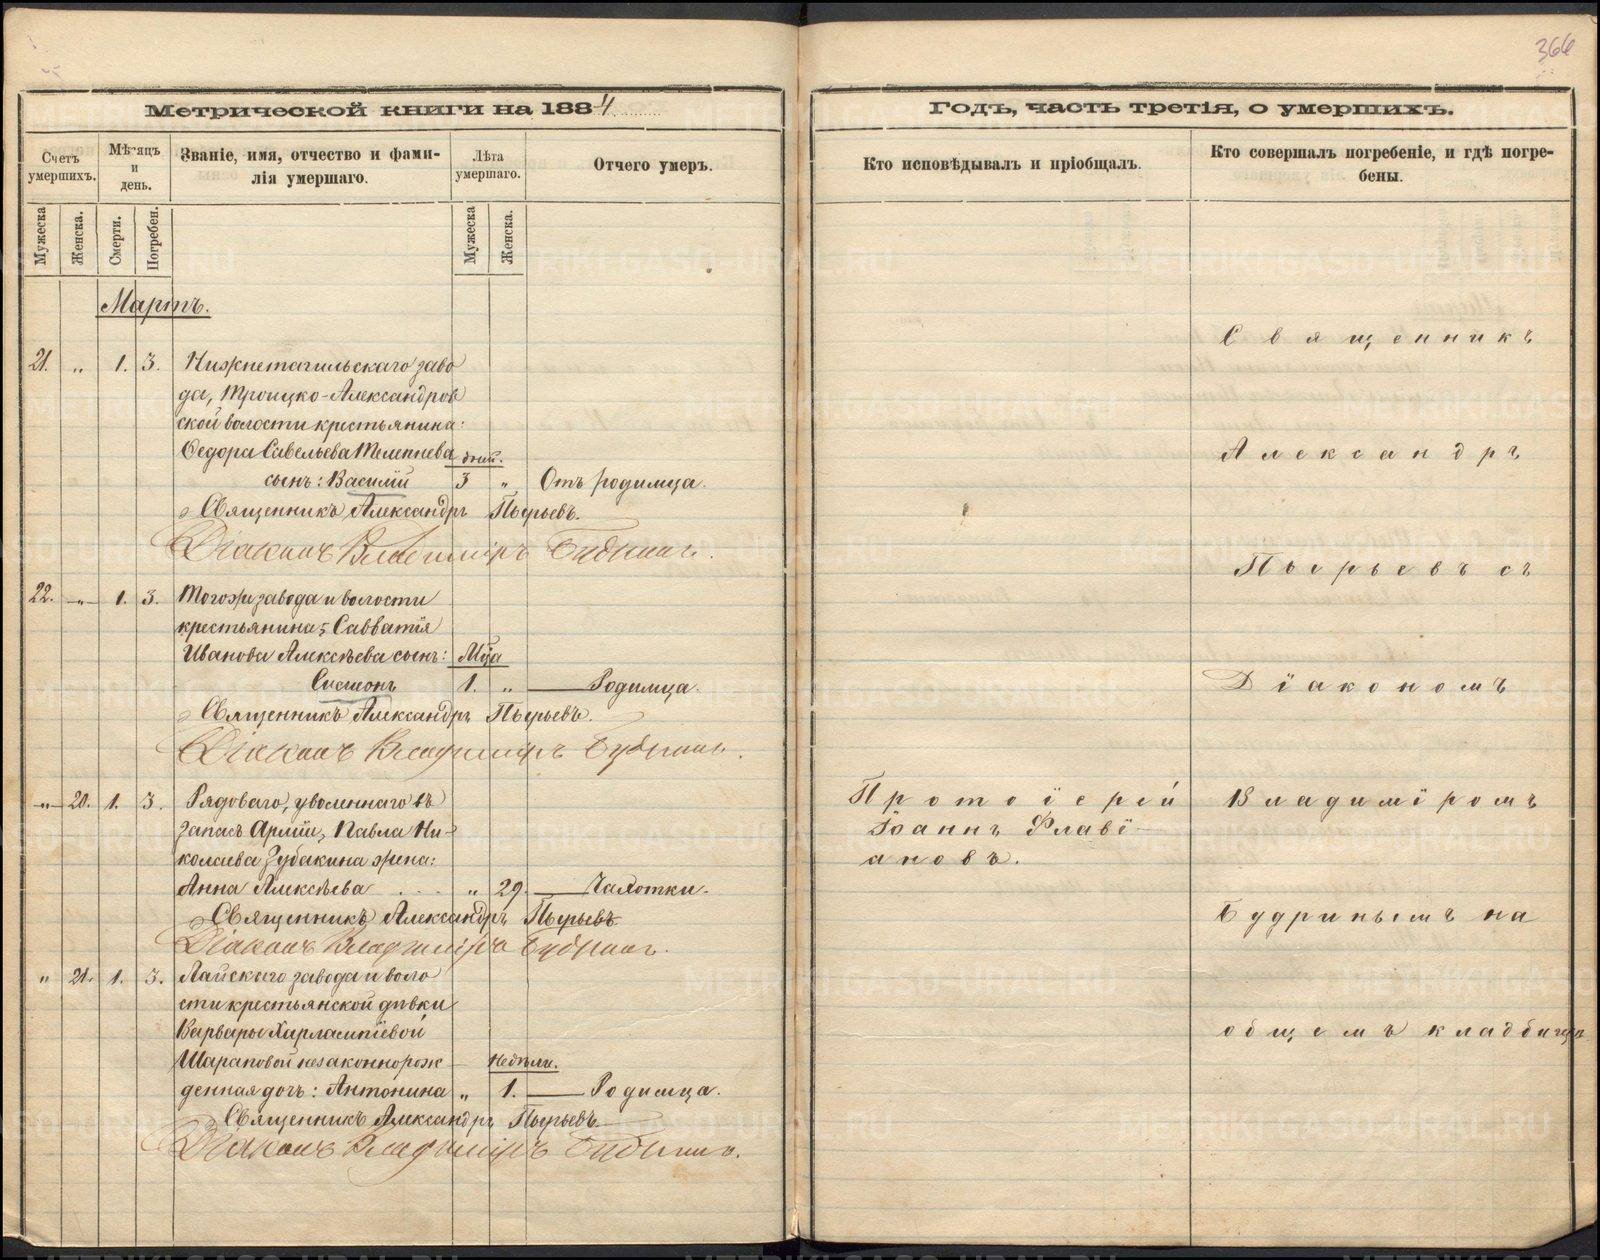 366
Метрической книги на 1884
Годъ, часть третія, о умершихъ.
Счетъ умершихъ.
Мѣсяцъ и день.
Званіе, имя, отчество и фами-
лія умершаго.
Лѣта умершаго.
Отчего умеръ.
Кто исповѣдывалъ и пріобщалъ.
Кто совершалъ погребеніе, и гдѣ погре-
бены.
Мужеска
Женска.
Смерти.
Погребен.
Мужеска
Женска.
Мартъ.
21. „ 1. 3. Нижнетагильскаго заво
да, Троицко-Александров
ской волости крестьянина:
Ѳедора Савельева Телепнева дней.
сынъ: Василій 3 „ Отъ родимца.
Священникъ Александръ Пырьевъ.
Діаконъ Владиміръ Будринъ.
22. „ 1. 3. Тогоже завода и волости
крестьянина, Савватія
Иванова Алексѣева сынъ: Мца
Симеонъ 1. „ — Родимца.
Священникъ Александръ Пырьевъ.
Діаконъ Владиміръ Будринъ.
„ 20. 1. 3. Рядоваго, уволеннаго въ
запасъ Арміи, Павла Ни-
колаева Зубакина жена:
Анна Алексѣева „ 29. — Чахотки.
Священникъ Александръ Пырьевъ
Діаконъ Владиміръ Будринъ.
„ 21. 1. 3. Лайскаго завода и воло
сти крестьянской дѣвки
Варвары Харлампіевой
Шараповой незаконнорож — недѣли.
денная дочь: Антонина „ 1. — Родимца.
Священникъ Александръ Пырьевъ
Діаконъ Владиміръ Будринъ.
Протоіерей
Іоаннъ Флаві-
ановъ.
Священникъ
Александръ
Пырьевъ съ
Діакономъ
Владиміромъ
Будринымъ на
общемъ кладбищѣ